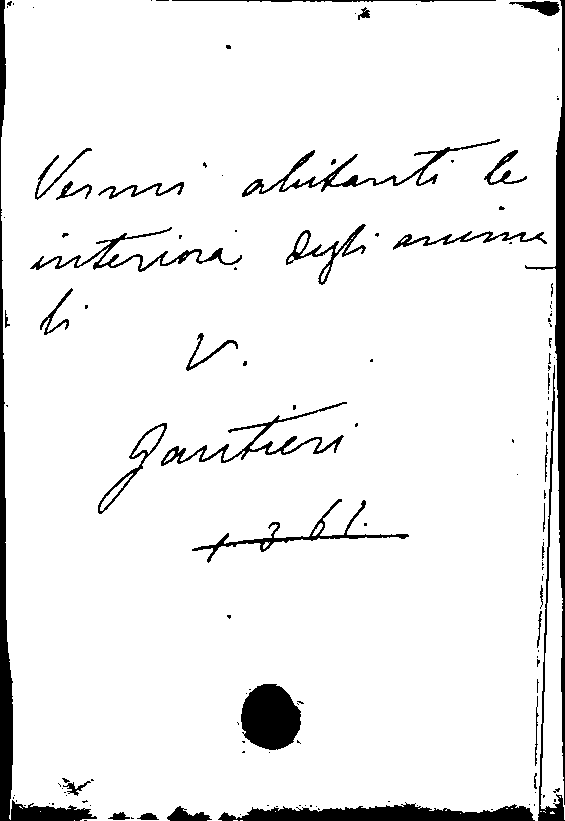 Vermi abitanti le
interiora degli anima
li
V.
Gautieri
1. 3. 61.